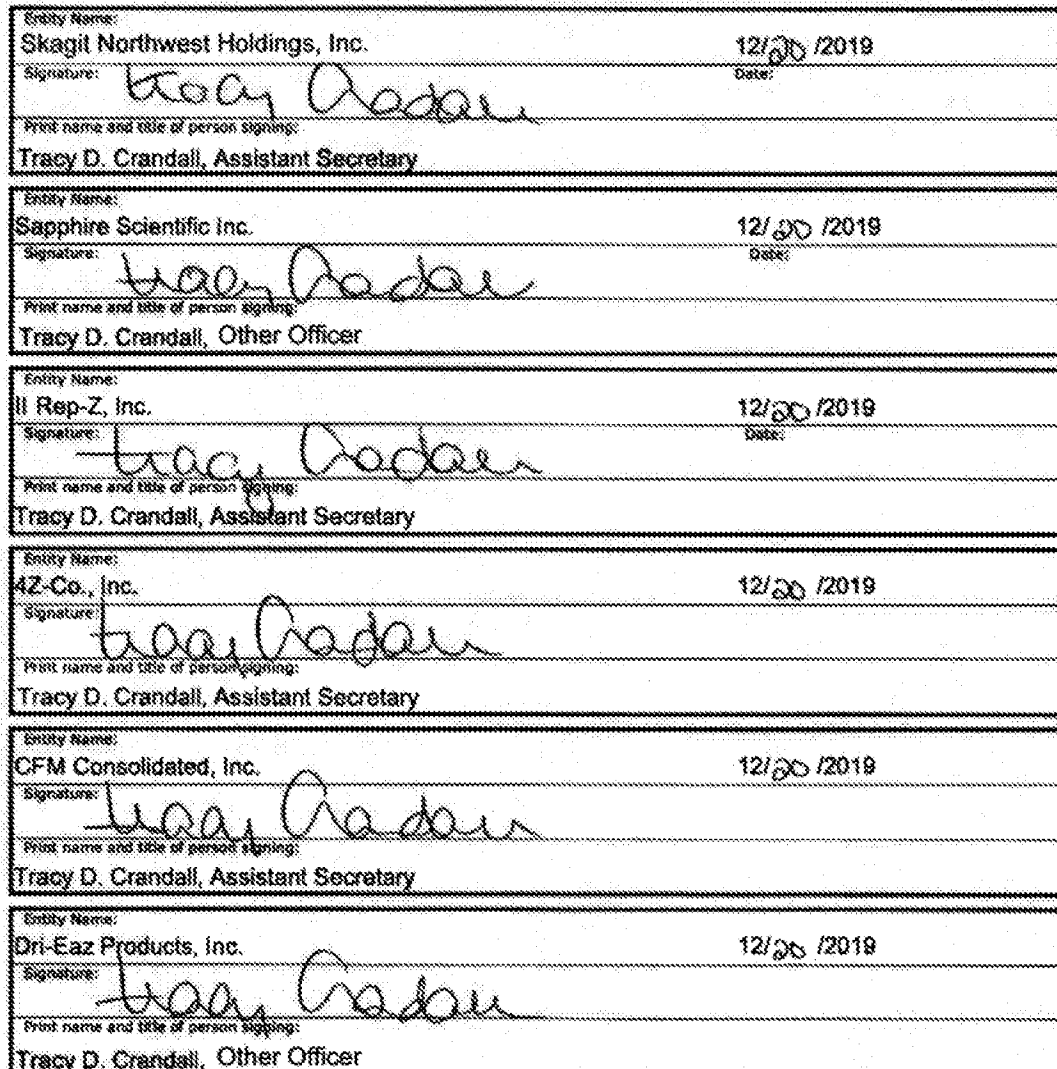 Entity Name:
Skagit Northwest Holdings, Inc. 12/20/2019
Signature: Tracy Crandall Date:
Print name and title of person signing:
Tracy D. Crandall, Assistant Secretary
Entity Name:
Sapphire Scientific Inc. 12/20/2019
Signature: Tracy Crandall Date:
Print name and title of person signing:
Tracy D. Crandall, Other Officer
Entity Name:
II Rep-Z, Inc. 12/20/2019
Signature: Tracy Crandall Date:
Print name and title of person signing:
Tracy D. Crandall, Assistant Secretary
Entity Name:
4Z-Co., Inc. 12/20/2019
Signature: Tracy Crandall
Print name and title of person signing:
Tracy D. Crandall, Assistant Secretary
Entity Name:
CFM Consolidated, Inc. 12/20/2019
Signature: Tracy Crandall
Print name and title of person signing:
Tracy D. Crandall, Assistant Secretary
Entity Name:
Dri-Eaz Products, Inc. 12/20/2019
Signature: Tracy Crandall
Print name and title of person signing:
Tracy D. Crandall, Other Officer